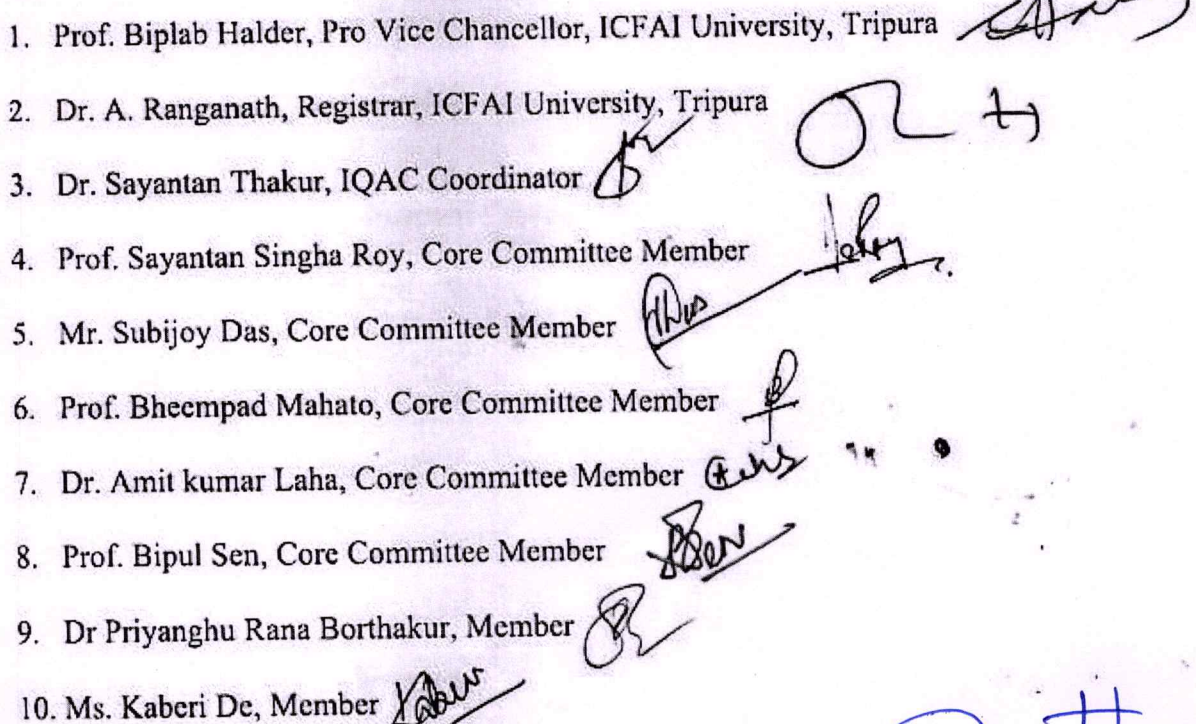 1. Prof. Biplab Halder, Pro Vice Chancellor, ICFAI University, Tripura
2. Dr. A. Ranganath, Registrar, ICFAI University, Tripura
3. Dr. Sayantan Thakur, IQAC Coordinator
4. Prof. Sayantan Singha Roy, Core Committee Member
5. Mr. Subijoy Das, Core Committee Member
6. Prof. Bheempad Mahato, Core Committee Member
7. Dr. Amit kumar Laha, Core Committee Member
8. Prof. Bipul Sen, Core Committee Member
9. Dr Priyanghu Rana Borthakur, Member
10. Ms. Kaberi De, Member